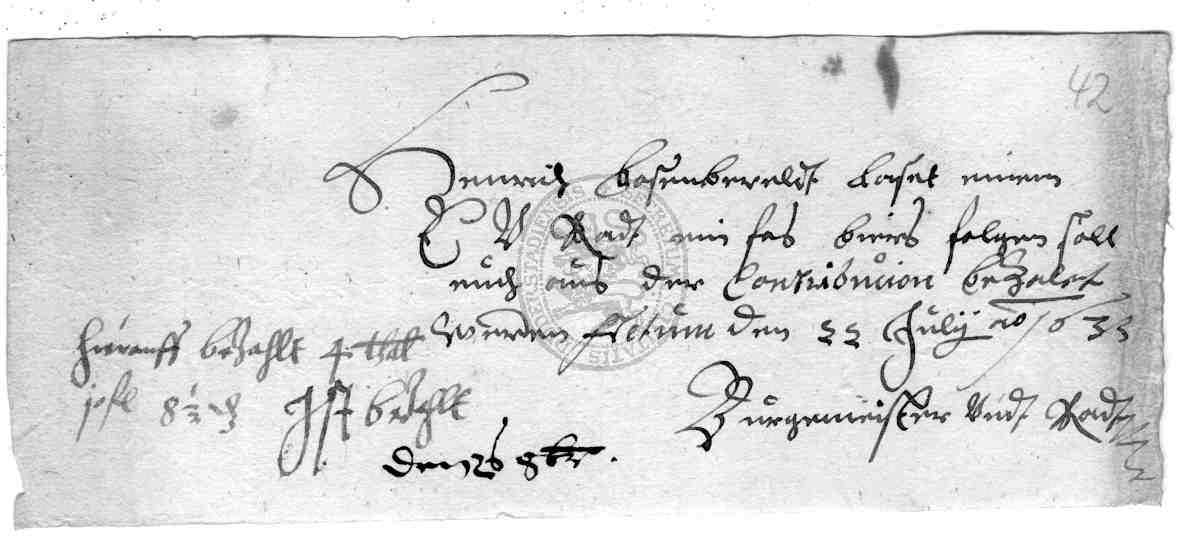 42
Henrich bosenbereldt laset einem
E V Radt ein fas biers folgen solt
euch aus der Contribucion bezalet
werden Actum den 22 Julij ao 1633
Burgemeister Undt Radt
hierauff bezahlt 4 thal
8½ ist bezhlt
den 26 8br.